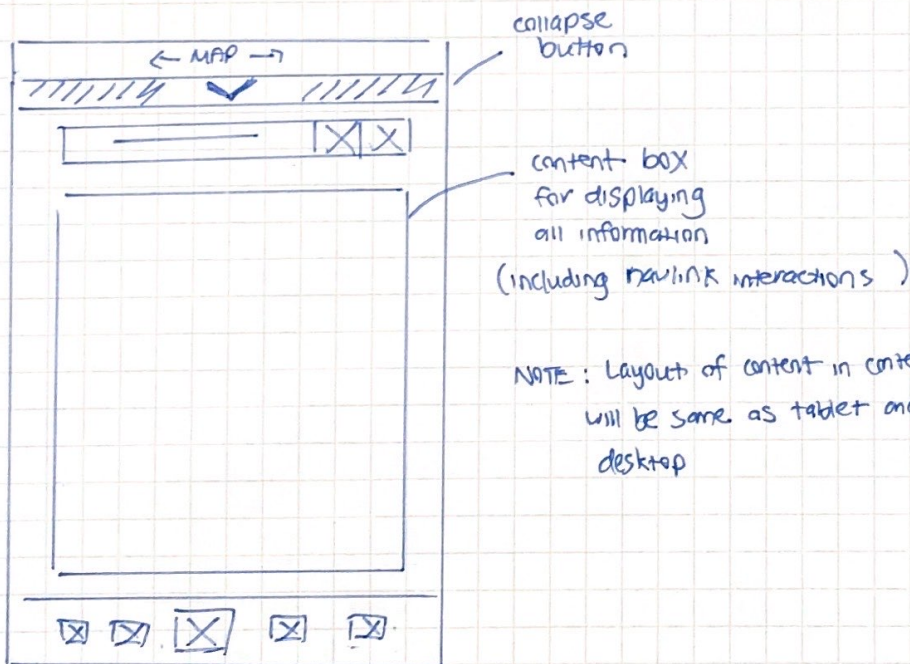 collapse
button
← MAP →
content box
for displaying
all information
(including navlink interactions)
NOTE: Layout of content in conte
will be same as tablet and
desktop